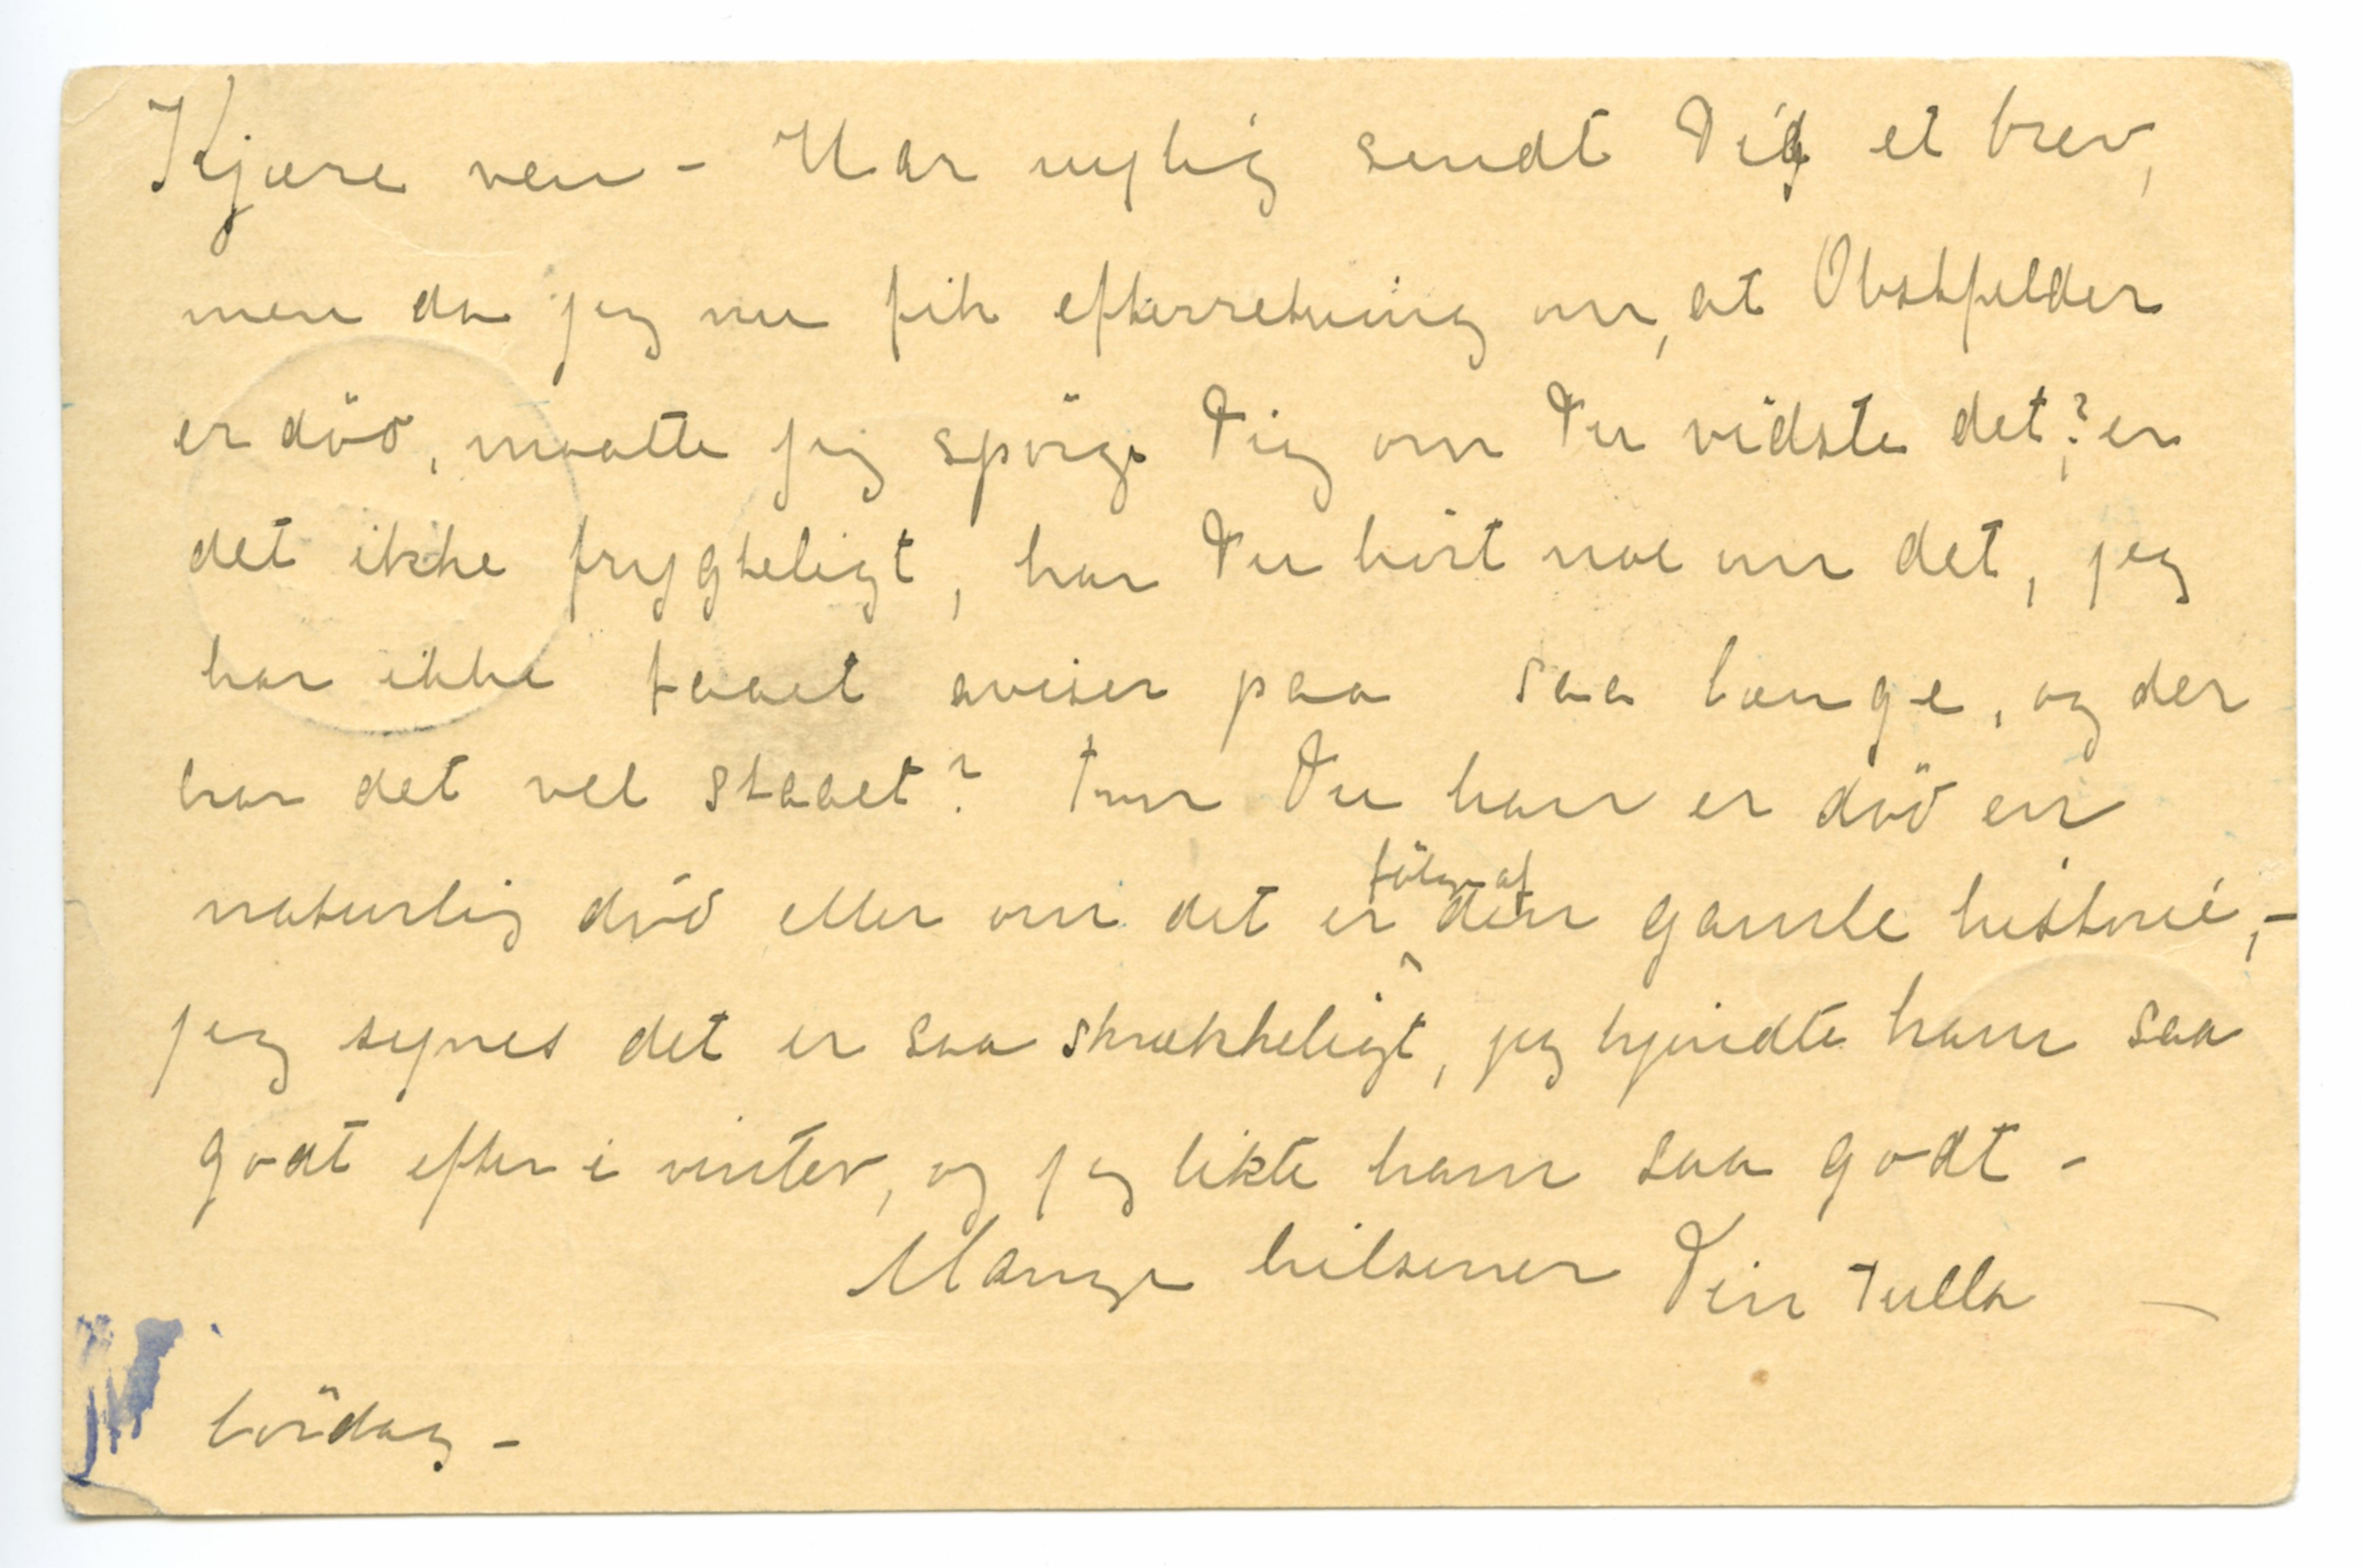 Kjære ven – Har nylig sendt Dig et brev,
men da jeg nu fik efterretning om, at Obstfelder
er död, maatte jeg spörge Dig om Du vidste det,? er
det ikke frygteligt, har Du hört noe om det, jeg
har ikke faaet aviser paa saa længe, og der
har det vel staaet? tror Du han er död en
naturlig död eller om det er fölge af den gamle historie, –
jeg synes det er saa skrækkeligt, jeg kjendte ham saa
godt efter i vinter, og jeg likte ham saa godt –
Mange hilsener Din Tulla –
lördag –